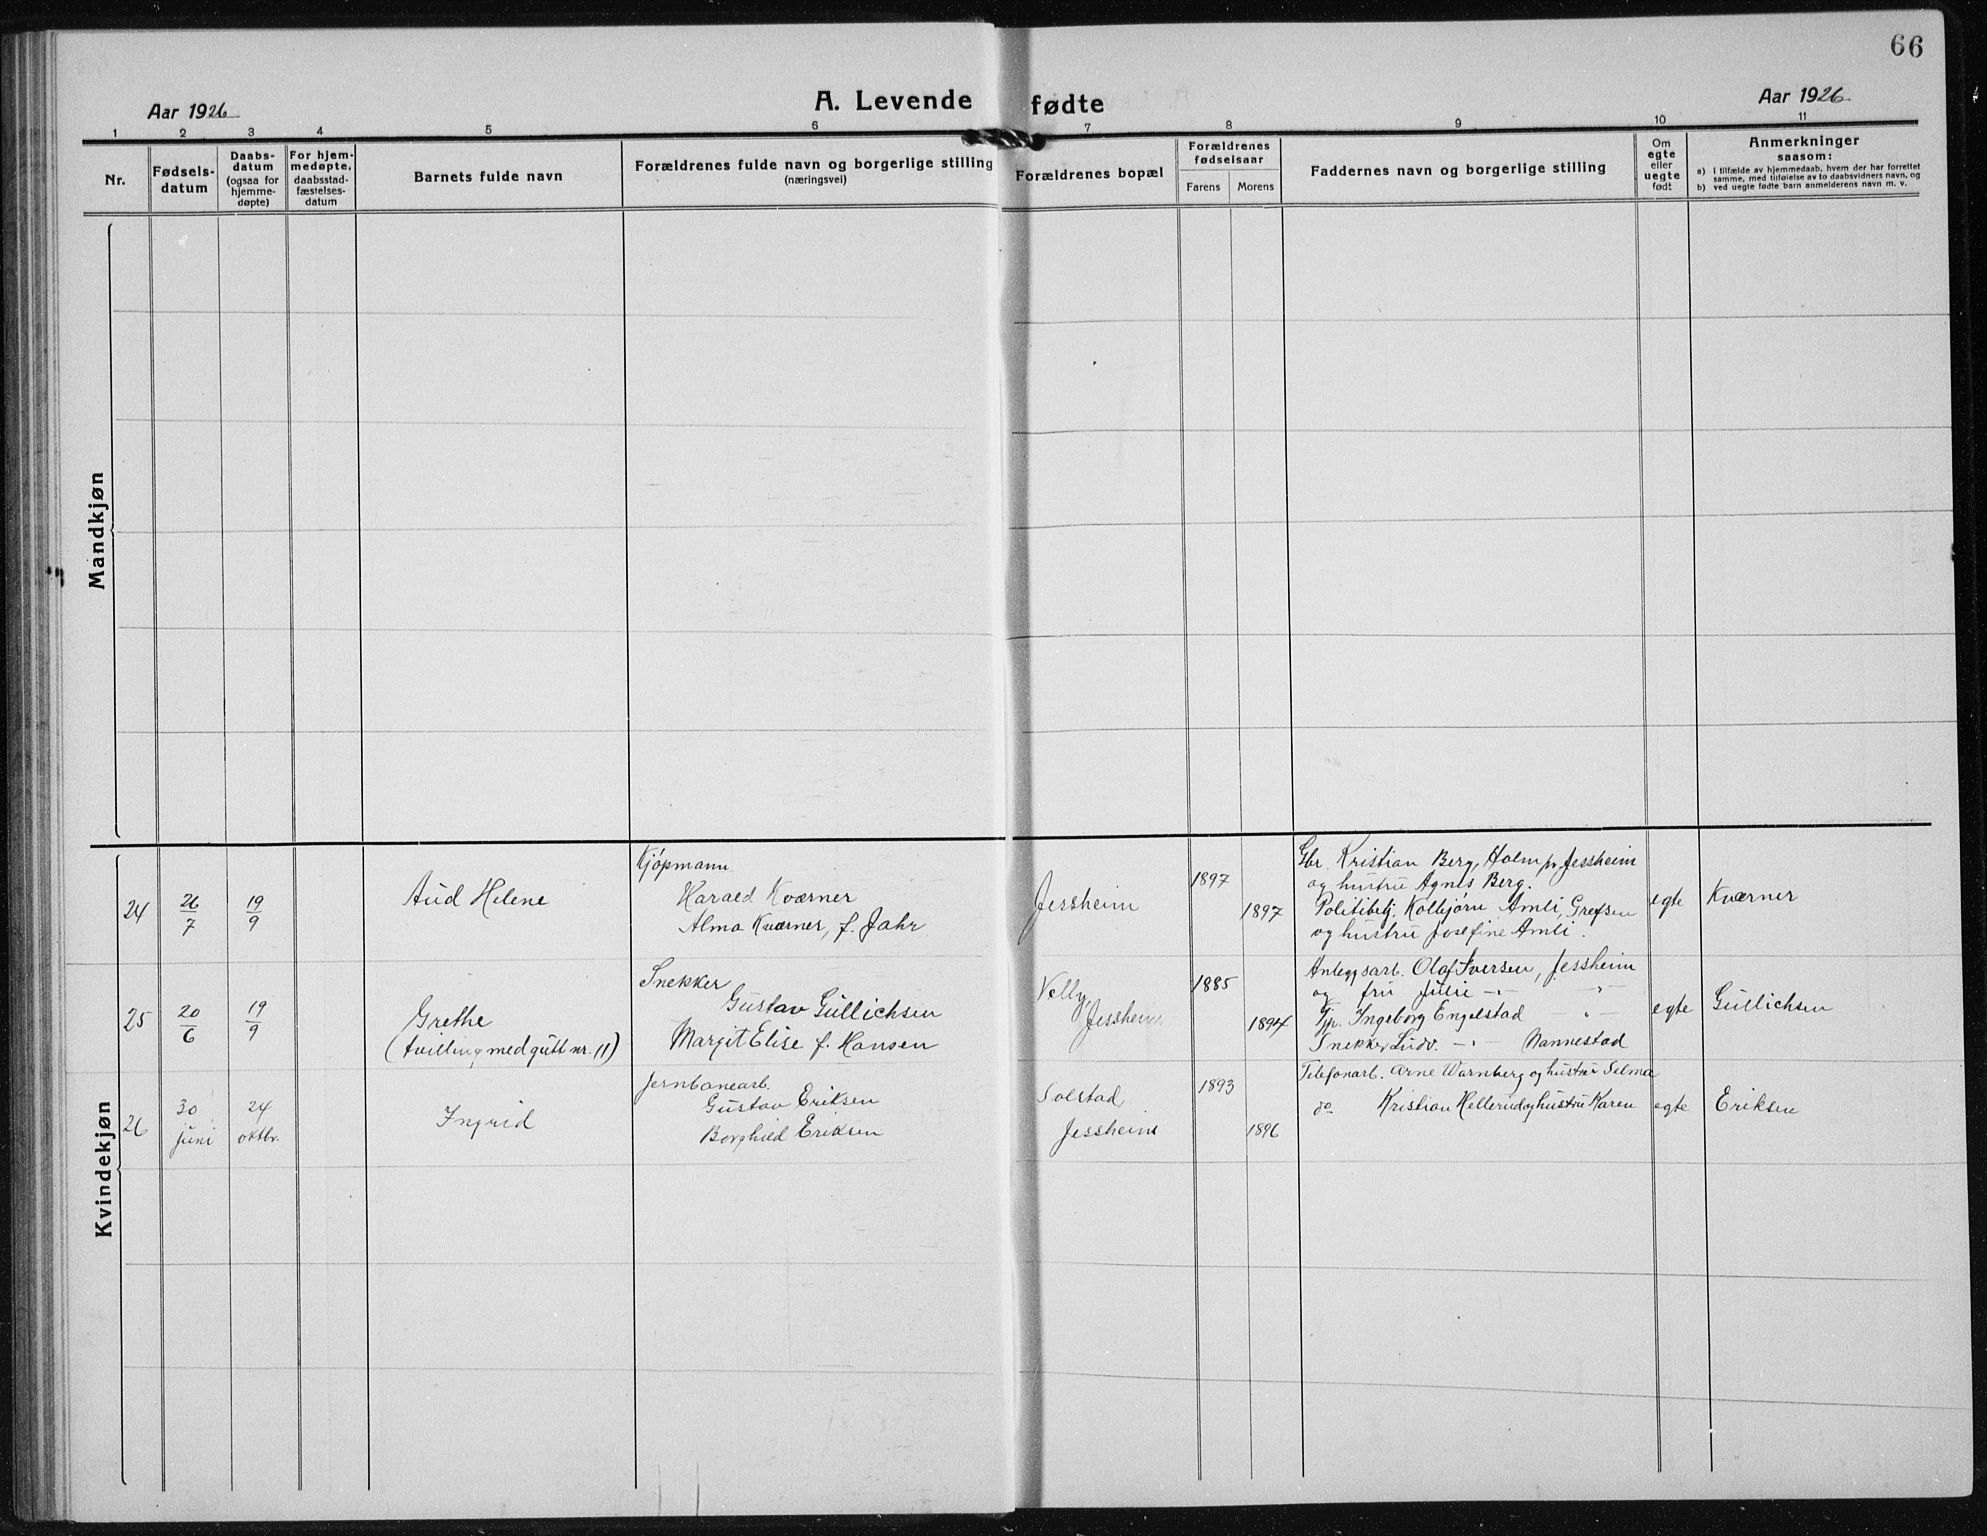 66
Aar 1926
A. Levende fødte
Aar 1926
1 2 3 4 5 6 7 8 9 10 11
Nr.
Fødsels-
datum
Daabs-
datum
(ogsaa for
hjemme-
døpte)
For hjem-
medøpte,
daabsstad-
fæstelses-
datum
Barnets fulde navn
Forældrenes fulde navn og borgerlige stilling
(næringsvei)
Forældrenes bopæl
Forældrenes
fødselsaar
Farens Morens
Faddernes navn og borgerlige stilling
Om
egte
eller
uegte
født
Anmerkninger
saasom:
a) I tilfælde av hjemmedaab, hvem der har forrettet
samme, med tilføielse av to daabsvidners navn, og
b) ved uegte fødte barn anmelderens navn m. v.
Mandkjøn
Kvindekjøn
24
26/7
19/9
Aud Helene
Kjøpmann
Harald Kværner
Alma Kværner, f. Jahr
Jessheim
1897
1897
Gbr. Kristian Berg, Holm pr Jessheim
og hustru Agnes Berg.
Politibetj. Kolbjørn Amli, Grefsen
og hustru Josefine Amli.
egte
Kværner
25
20/6
19/9
Grethe
(tvilling med gutt nr. 11)
Snekker
Gustav Gullichsen
Margit Elise f. Hansen
Velly,
Jessheim
1885
1894
Anleggsarb. Olaf Iversen, Jessheim
og fru Julie -"- -"-
Ingeborg Engelstad "-
Snekker Ludv. -"- Nannestad
egte
Gullichsen
26
30
juni
24
oktbr.
Ingrid
Jernbanearb.
Gustav Eriksen
Borghild Eriksen
Solstad,
Jessheim
1893
1896
Telefonarb. Arne Warnberg og hustru Selma
do Kristian Hellerud og hustru Karen
egte
Eriksen